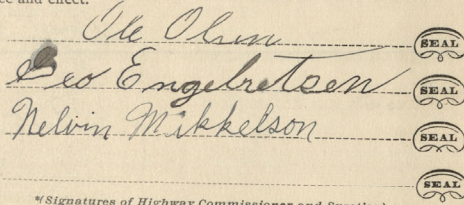 ce and effect.
Ole Olsen SEAL
Geo Engelretsen SEAL
Nelvin Mikkelson SEAL
SEAL
*(Signatures of Highway Commissioner and